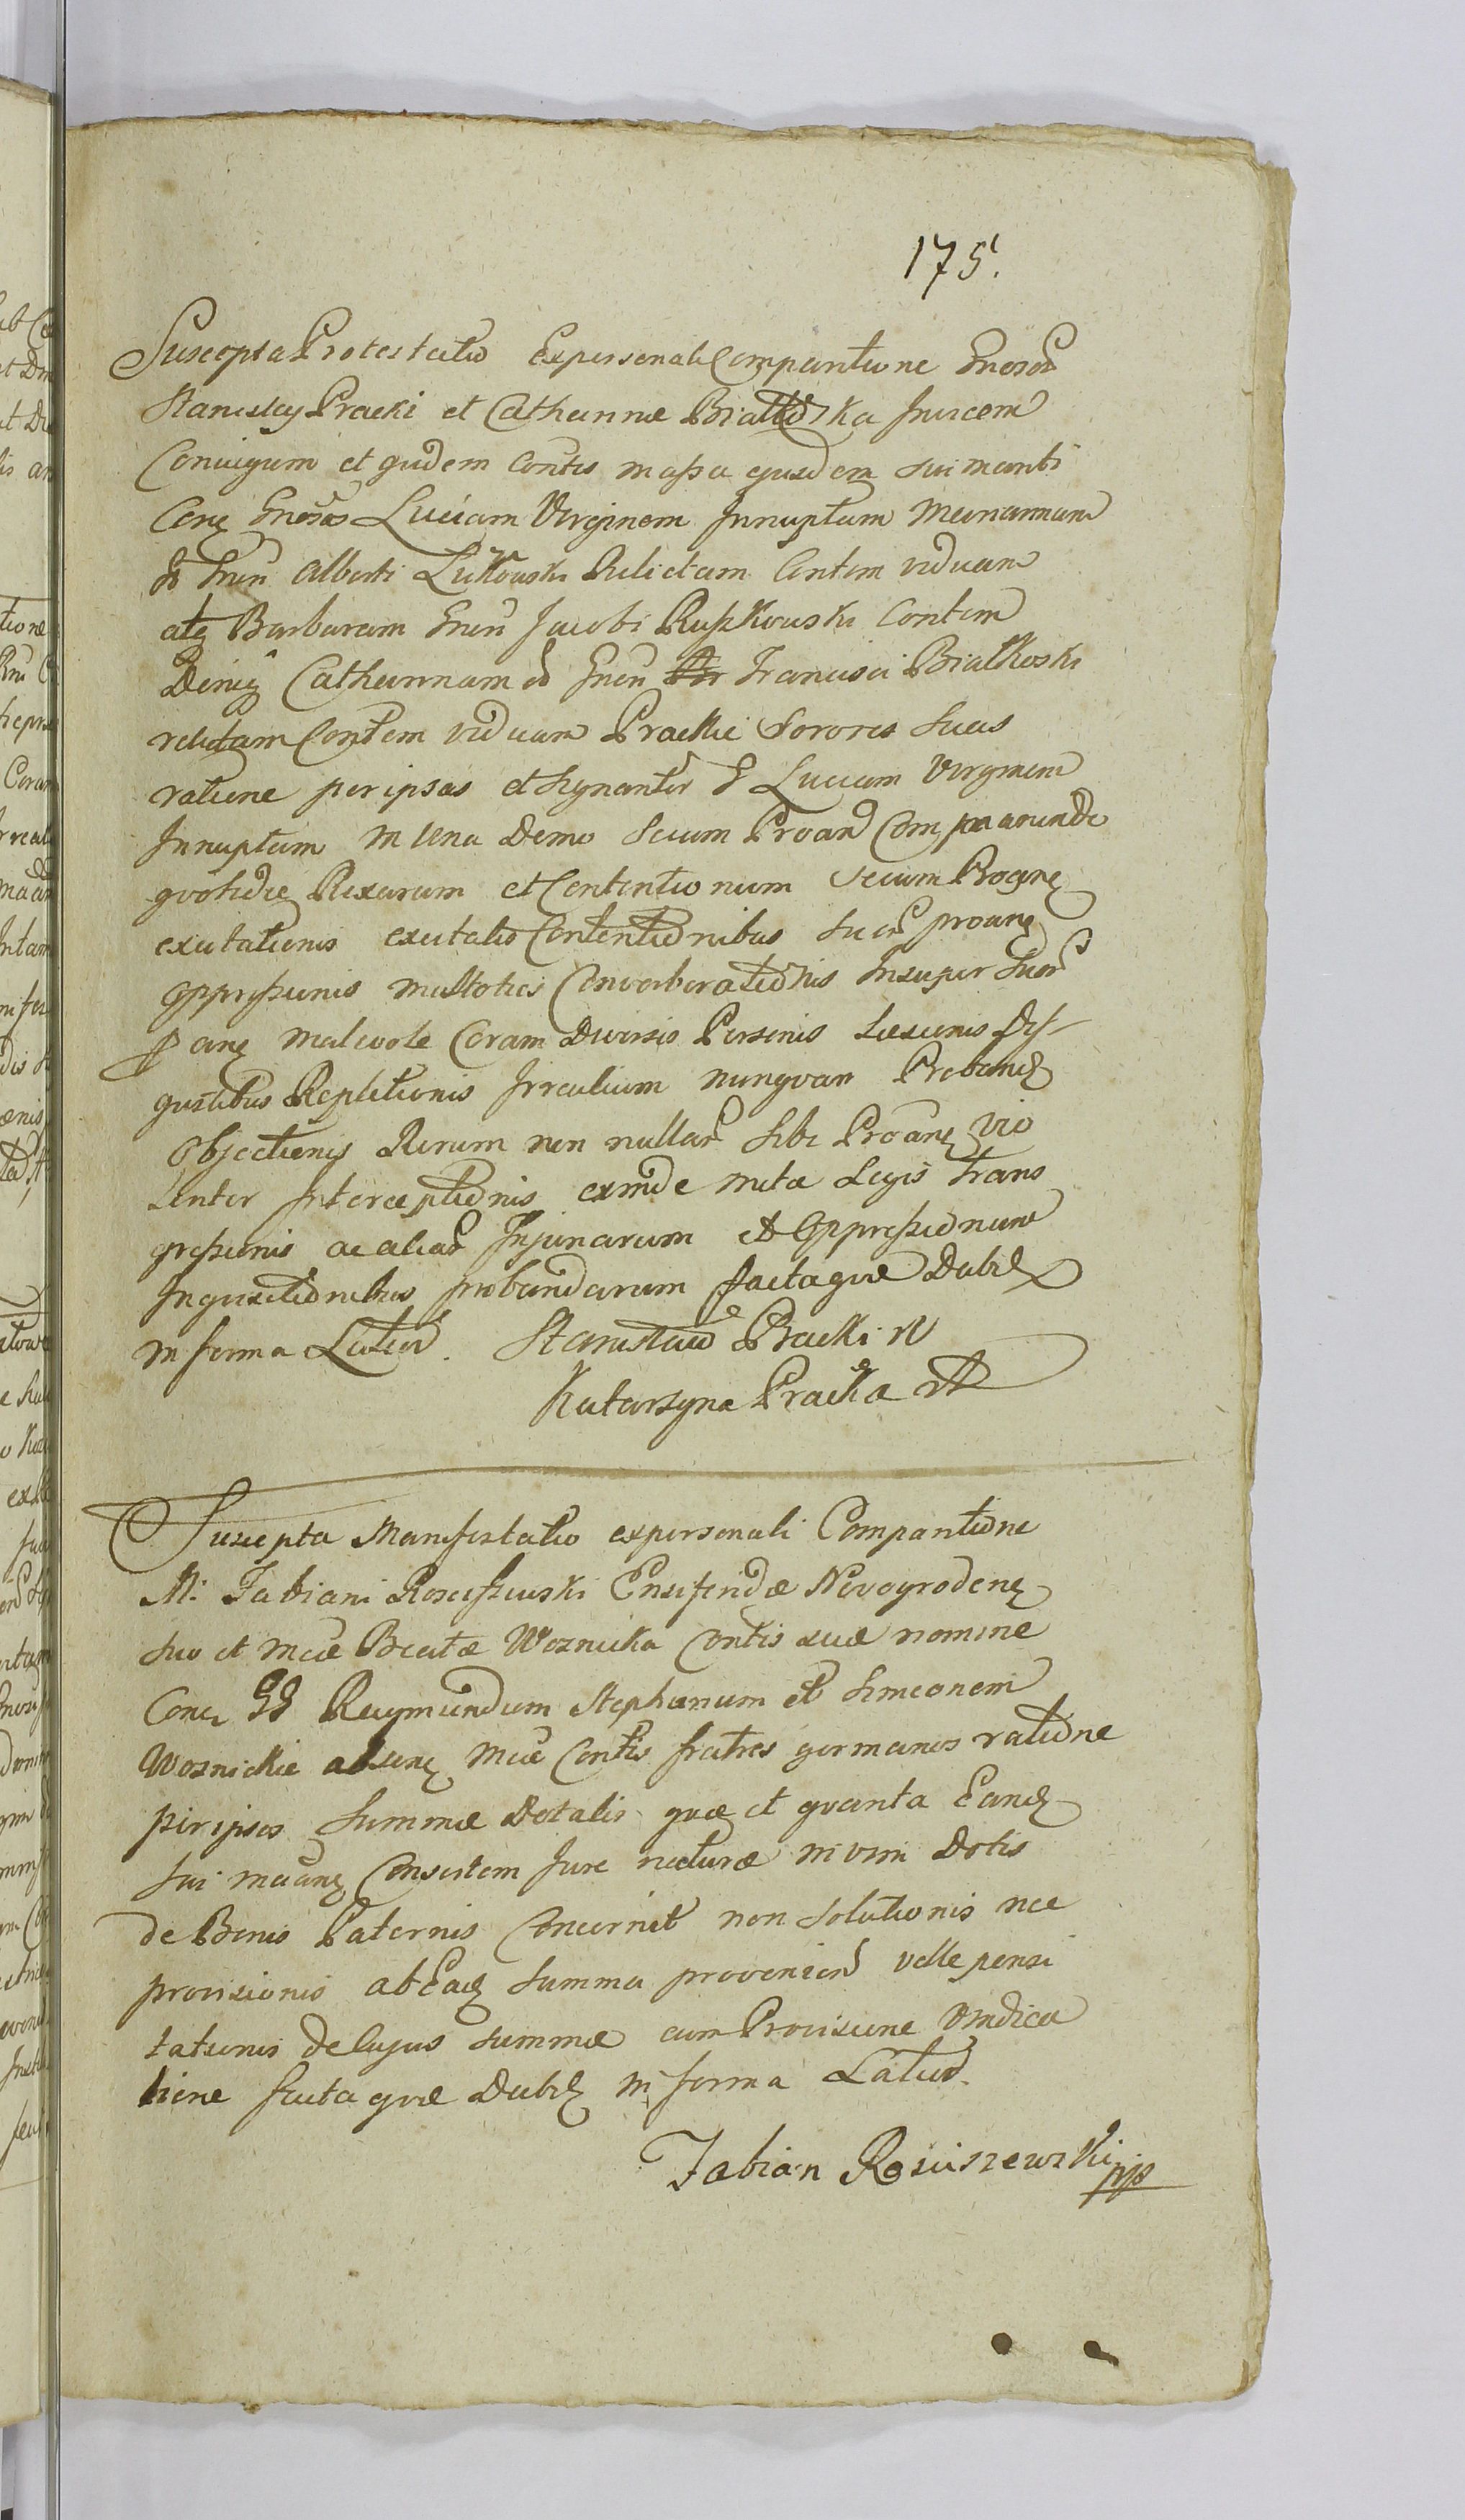 175.
Suscepta Protestatio Expersonali Comparitione Gnosor
Stanislai Pracki et Catharinæ Białkoska Invicem
Coniugum et quidem Contis in assa ejusdem sui mariti
Conq Gnosas Luciam Virginem Innuptam Mariannam
Gnsi Alberti Lutkouski Relictam Contem viduam
atq Barbaram Gnsi Jacobi Ruszkouski Contem
Deniq Catharinam Gnsi Francisci Białkoski
relictam Contem viduam Prackie Sorores suas
ratione per ipsas et signanter G Luciam Virginem
Innuptam in una Domo secum Proan Commorando
quotidie Rixarum et Contentionum secum Proanq
excitationis excitatis Contentionibus suor proanq
Oppressionis multoties Converberationis Insuper suor
P anq malevole Coram Diversis Personis Læsionis Dis-
gustibus Repletionis Irrealium nunquam Proband
Objectionis Rerum non nullar sibi Proanq vio
lenter Interceptionis exinde mitæ Legis trans
gressionis ac aliar Injuriarum et Oppressionum
Inquisitionibus probandarum factaque Dabit
in forma Latiori. Stanisław Pracki
Katarzyna Pracka
Suscepta Manifestatio expersonali Comparitione
M: Fabiani Rosciszewski Ensiferidæ Novogrodenq
suo et Mcæ Beatæ Woznicka Contis suæ nomine
Conq GG Raymundum Stephanum et Simeonem
Woznickie Mcæ Contis fratres germanos ratione
per ipsos Summæ Dotalis quæ et quanta Eand
sui Consortem Jure naturæ in vim Dotis
de Bonis Paternis Concernit non solutionis nec
provisionis ab Ead summa provenien velle pensi
tationis de Cujus summæ cum Provisione Vindica
tione factaque Dabit in forma Latiori.
Fabian Rosciszewski mp